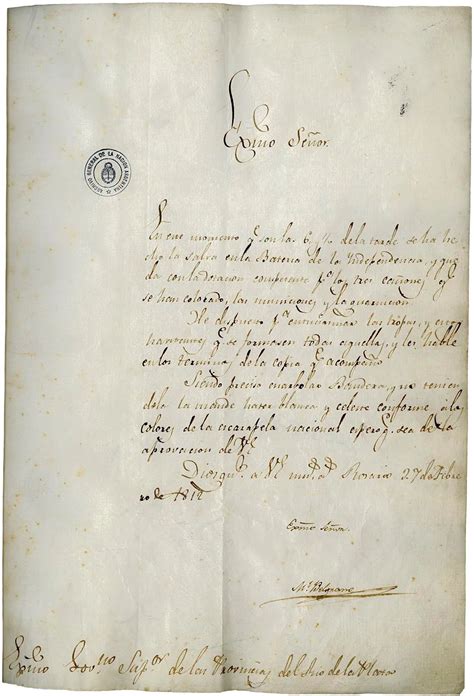 Exmo Señor.
ARCHIVO GENERAL DE LA NACION ARGENTINA
En este momento q.e son las 6 y 1/2 de la tarde se ha he
cho la salva en la Bateria de la Independencia, y que
da con la dotacion competente p.a los tres cañones q.e
se han colocado, las municiones y la guarnicion.
He dispuesto p.a entusiasmar las tropas, y estos
havitantes, q.e se formasen todas aquellas, y les hablé
en los terminos de la copia q.e acompaño.
Siendo preciso enarbolar Bandera, y no tenien
dola la mandé hacer blanca y celeste conforme á los
colores de la escarapela nacional espero q.e sea de la
aprovacion de V.E.
Dios gu.e a V.E. m.s a.s Rosario 27 de Febre
ro de 1812
Exmo Señor.
M.l Belgrano
Exmo Gov.no Sup.or de las Provincias del Rio de la Plata